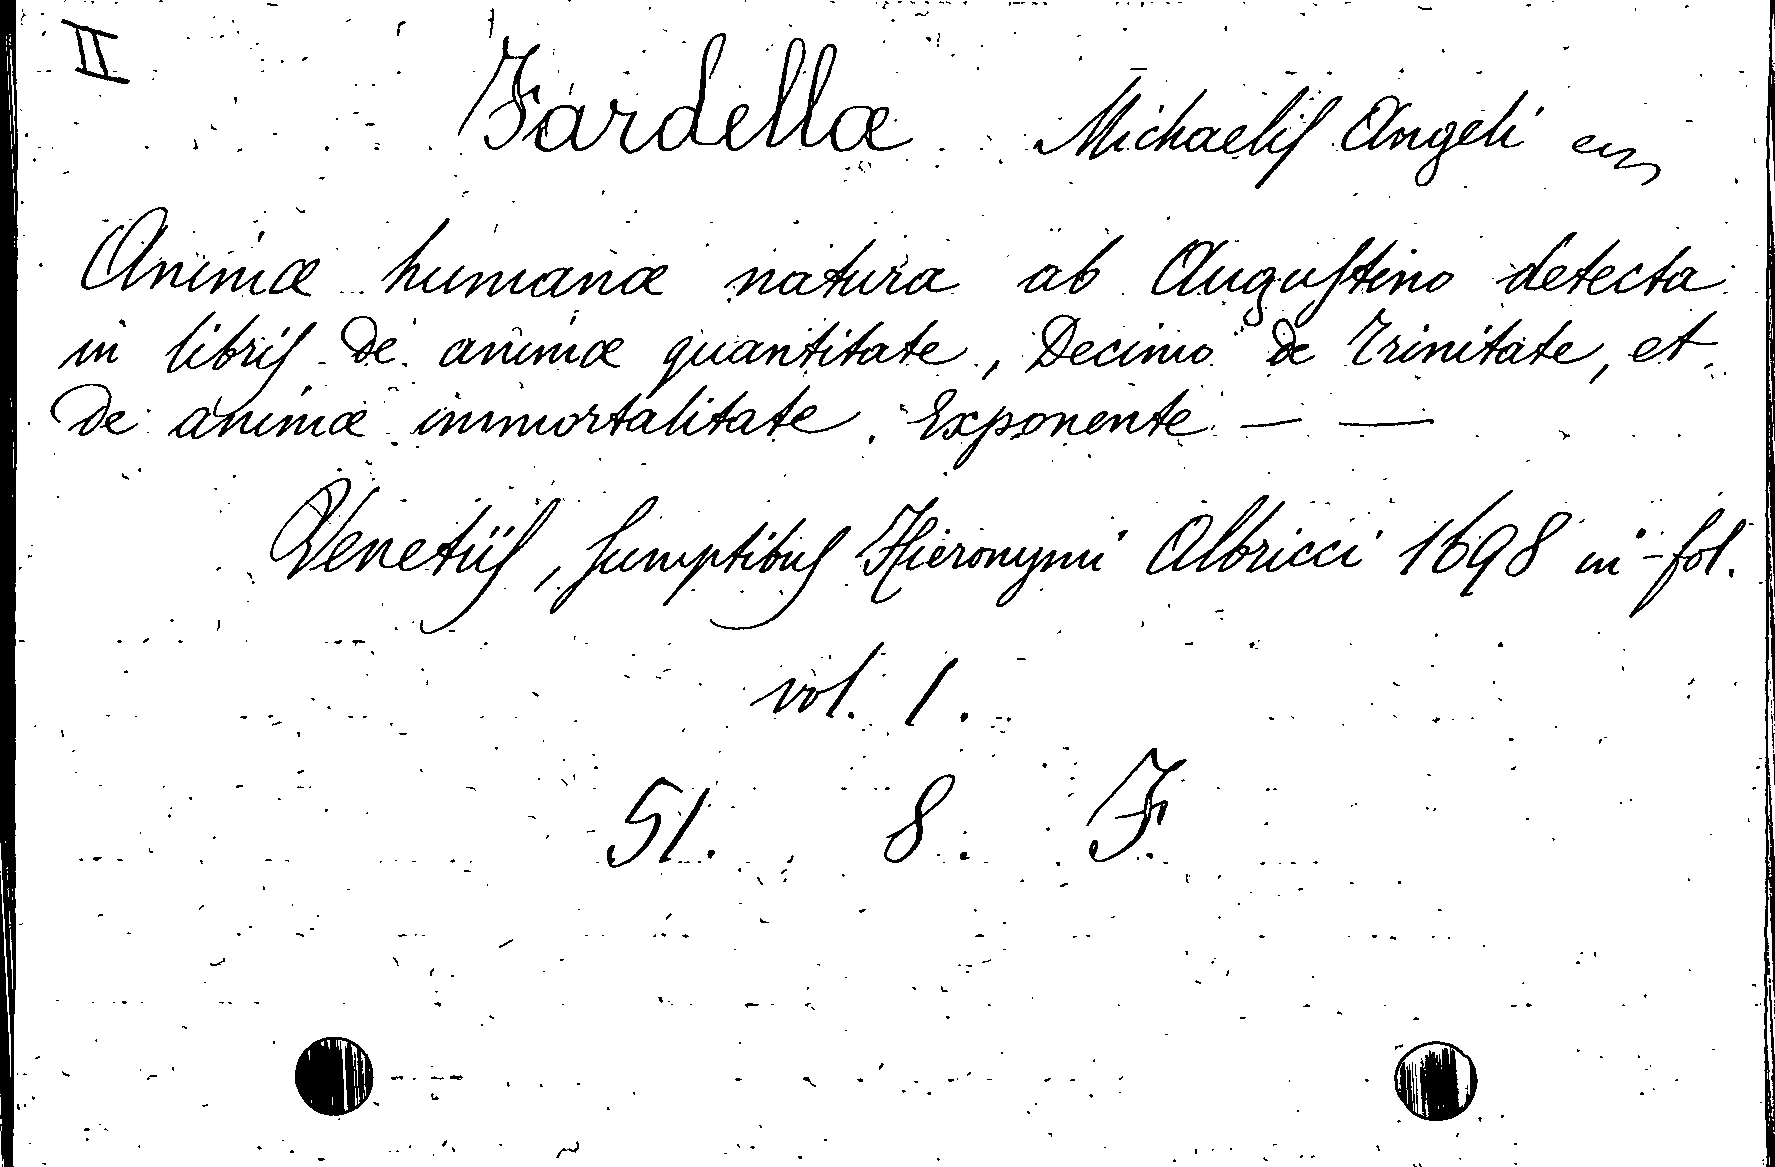 II
Fardellæ Michaelis Angeli
Animæ humanæ natura ab Augustino detecta
in libris de animæ quantitate, Decimo de Trinitate, et
de animæ immortalitate. Exponente — —
Venetiis, sumptibus Hieronymi Albricci 1698 in-fol.
vol. 1.
51. 8. F.